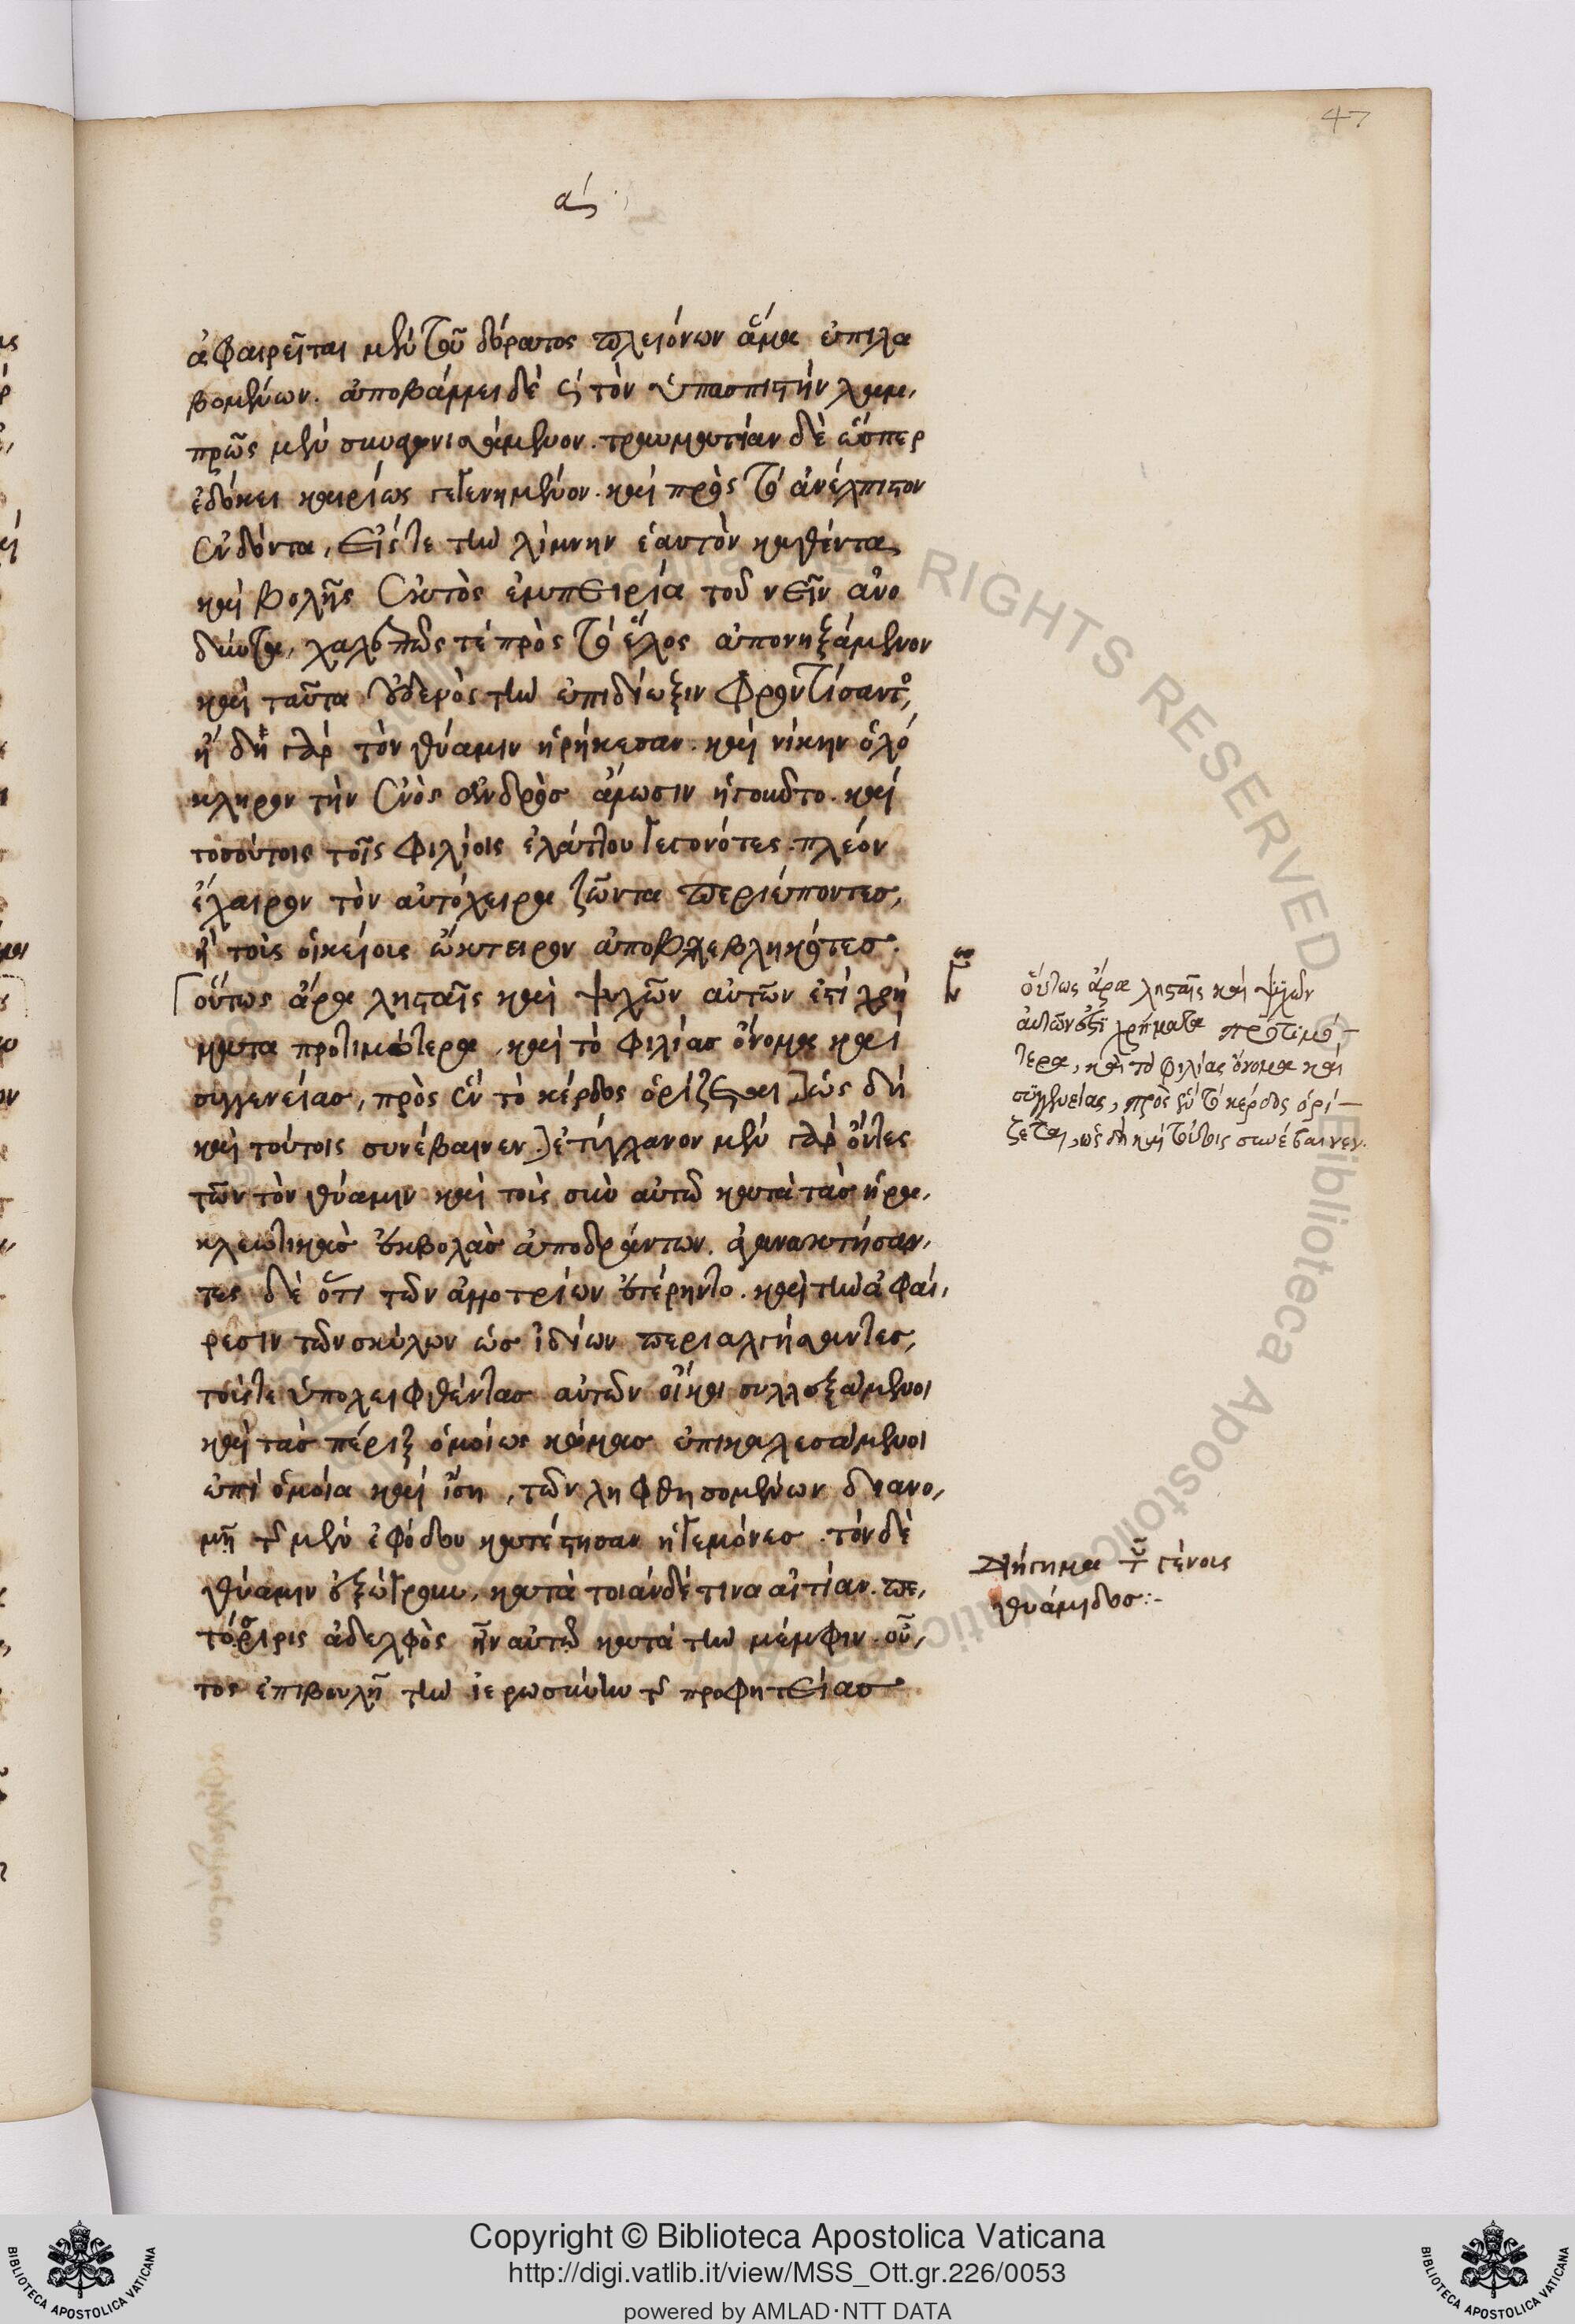 47
ας΄
ἀφαιρεῖται μὲν τοῦ δόρατος πλειόνων ἅμα ἐπιλα
βομένων. ἀποβάλλει δὲ καὶ τὸν ὑπασπιστὴν λαμ,
πρῶς μὲν συναγωνισάμενον. τραυματίαν δὲ ὥσπερ
ἐδόκει καιρίως γεγενημένον. καὶ πρὸς τὸ ἀνέλπιστον
ἐνδόντα, εἴς τε τὴν λίμνην ἑαυτὸν καθέντα
καὶ βολῆς ἐκτὸς ἐμπειρία τοῦ νεῖν ἀνα
δύντα, χαλεπῶς τέ πρὸς τὸ ἕλος ἀπονηξάμενον
καὶ ταῦτα οὐδενὸς τὴν ἐπιδίωξιν φροντίσαντος,
ἤδη γὰρ τὸν θύαμιν ᾑρήκεσαν. καὶ νίκην ὁλό
κληρον τὴν ἑνὸς ἀνδρὸς ἅλωσιν ἡγοῦντο. καὶ
τοσούτοις τοῖς φιλίοις ἐλάττου γεγονότες. πλέον
ἔχαιρον τὸν αὐτόχειρα ζῶντα περιέποντες,
ἢ τοὶς οἰκείοις ὤκτειρον ἀποβεβληκότες.
οὕτως ἄρα λῃσταῖς καὶ ψυχῶν αὐτῶν ἐστὶ χρή
ματα προτιμότερα, καὶ τὸ φιλίας ὄνομα καὶ
συγγενείας, πρὸς ἓν τὸ κέρδος ὁρίζεται] ὡς δὴ
καὶ τούτοις συνέβαινεν.] ἐτύγχανον μὲν γὰρ ὄντες
τῶν τὸν θύαμιν καὶ τοὶς σὺν αὐτῶ κατὰ τὰς ἡρα,
κλεωτικὰς ἐκβολὰς ἀποδράντων. ἀγανακτήσαν,
τες δὲ ὅτι τῶν ἀλλοτρίων ἐστέρηντο. καὶ τὴν ἀφαί,
ρεσιν τῶν σκύλων ὡς ἰδίων περιαλγήσαντες,
τούς τε ὑπολειφθέντας αὐτῶν οἴκοι συλλεξάμενοι
καὶ τὰς πέριξ ὁμοίως κώμας ἐπικαλεσάμενοι
ἐπὶ ὁμοία καὶ ἴση, τῶν ληφθησομένων διανο,
μῇ τῆς μὲν ἐφόδου κατέστησαν ἡγεμόνες. τὸν δὲ
θύαμιν ἐζώγρουν, κατὰ τοιάνδέ τινα αἰτίαν. πε,
τόσιρις ἀδελφὸς ἦν αὐτῶ κατὰ τὴν μέμφιν. οὗ,
τος ἐπιβουλῇ τὴν ἱερωσύνην τῆς προφητείας
οὕτως ἄρα λῃσταῖς καὶ ψυχῶν
αὐτῶν ἐστὶ χρήματα προτιμό-
τερα, καὶ τὸ φιλίας ὄνομα καὶ
συγγενείας, πρὸς ἓν τὸ κέρδος ὁρί-
ζεται, ὡς δὴ καὶ τούτοις συνέβαινεν.
Διήγημα τοῦ γένους
θυάμιδος:-
Copyright © Biblioteca Apostolica Vaticana
http://digi.vatlib.it/view/MSS_Ott.gr.226/0053
powered by AMLAD·NTT DATA
BIBLIOTECA APOSTOLICA VATICANA
BIBLIOTECA APOSTOLICA VATICANA